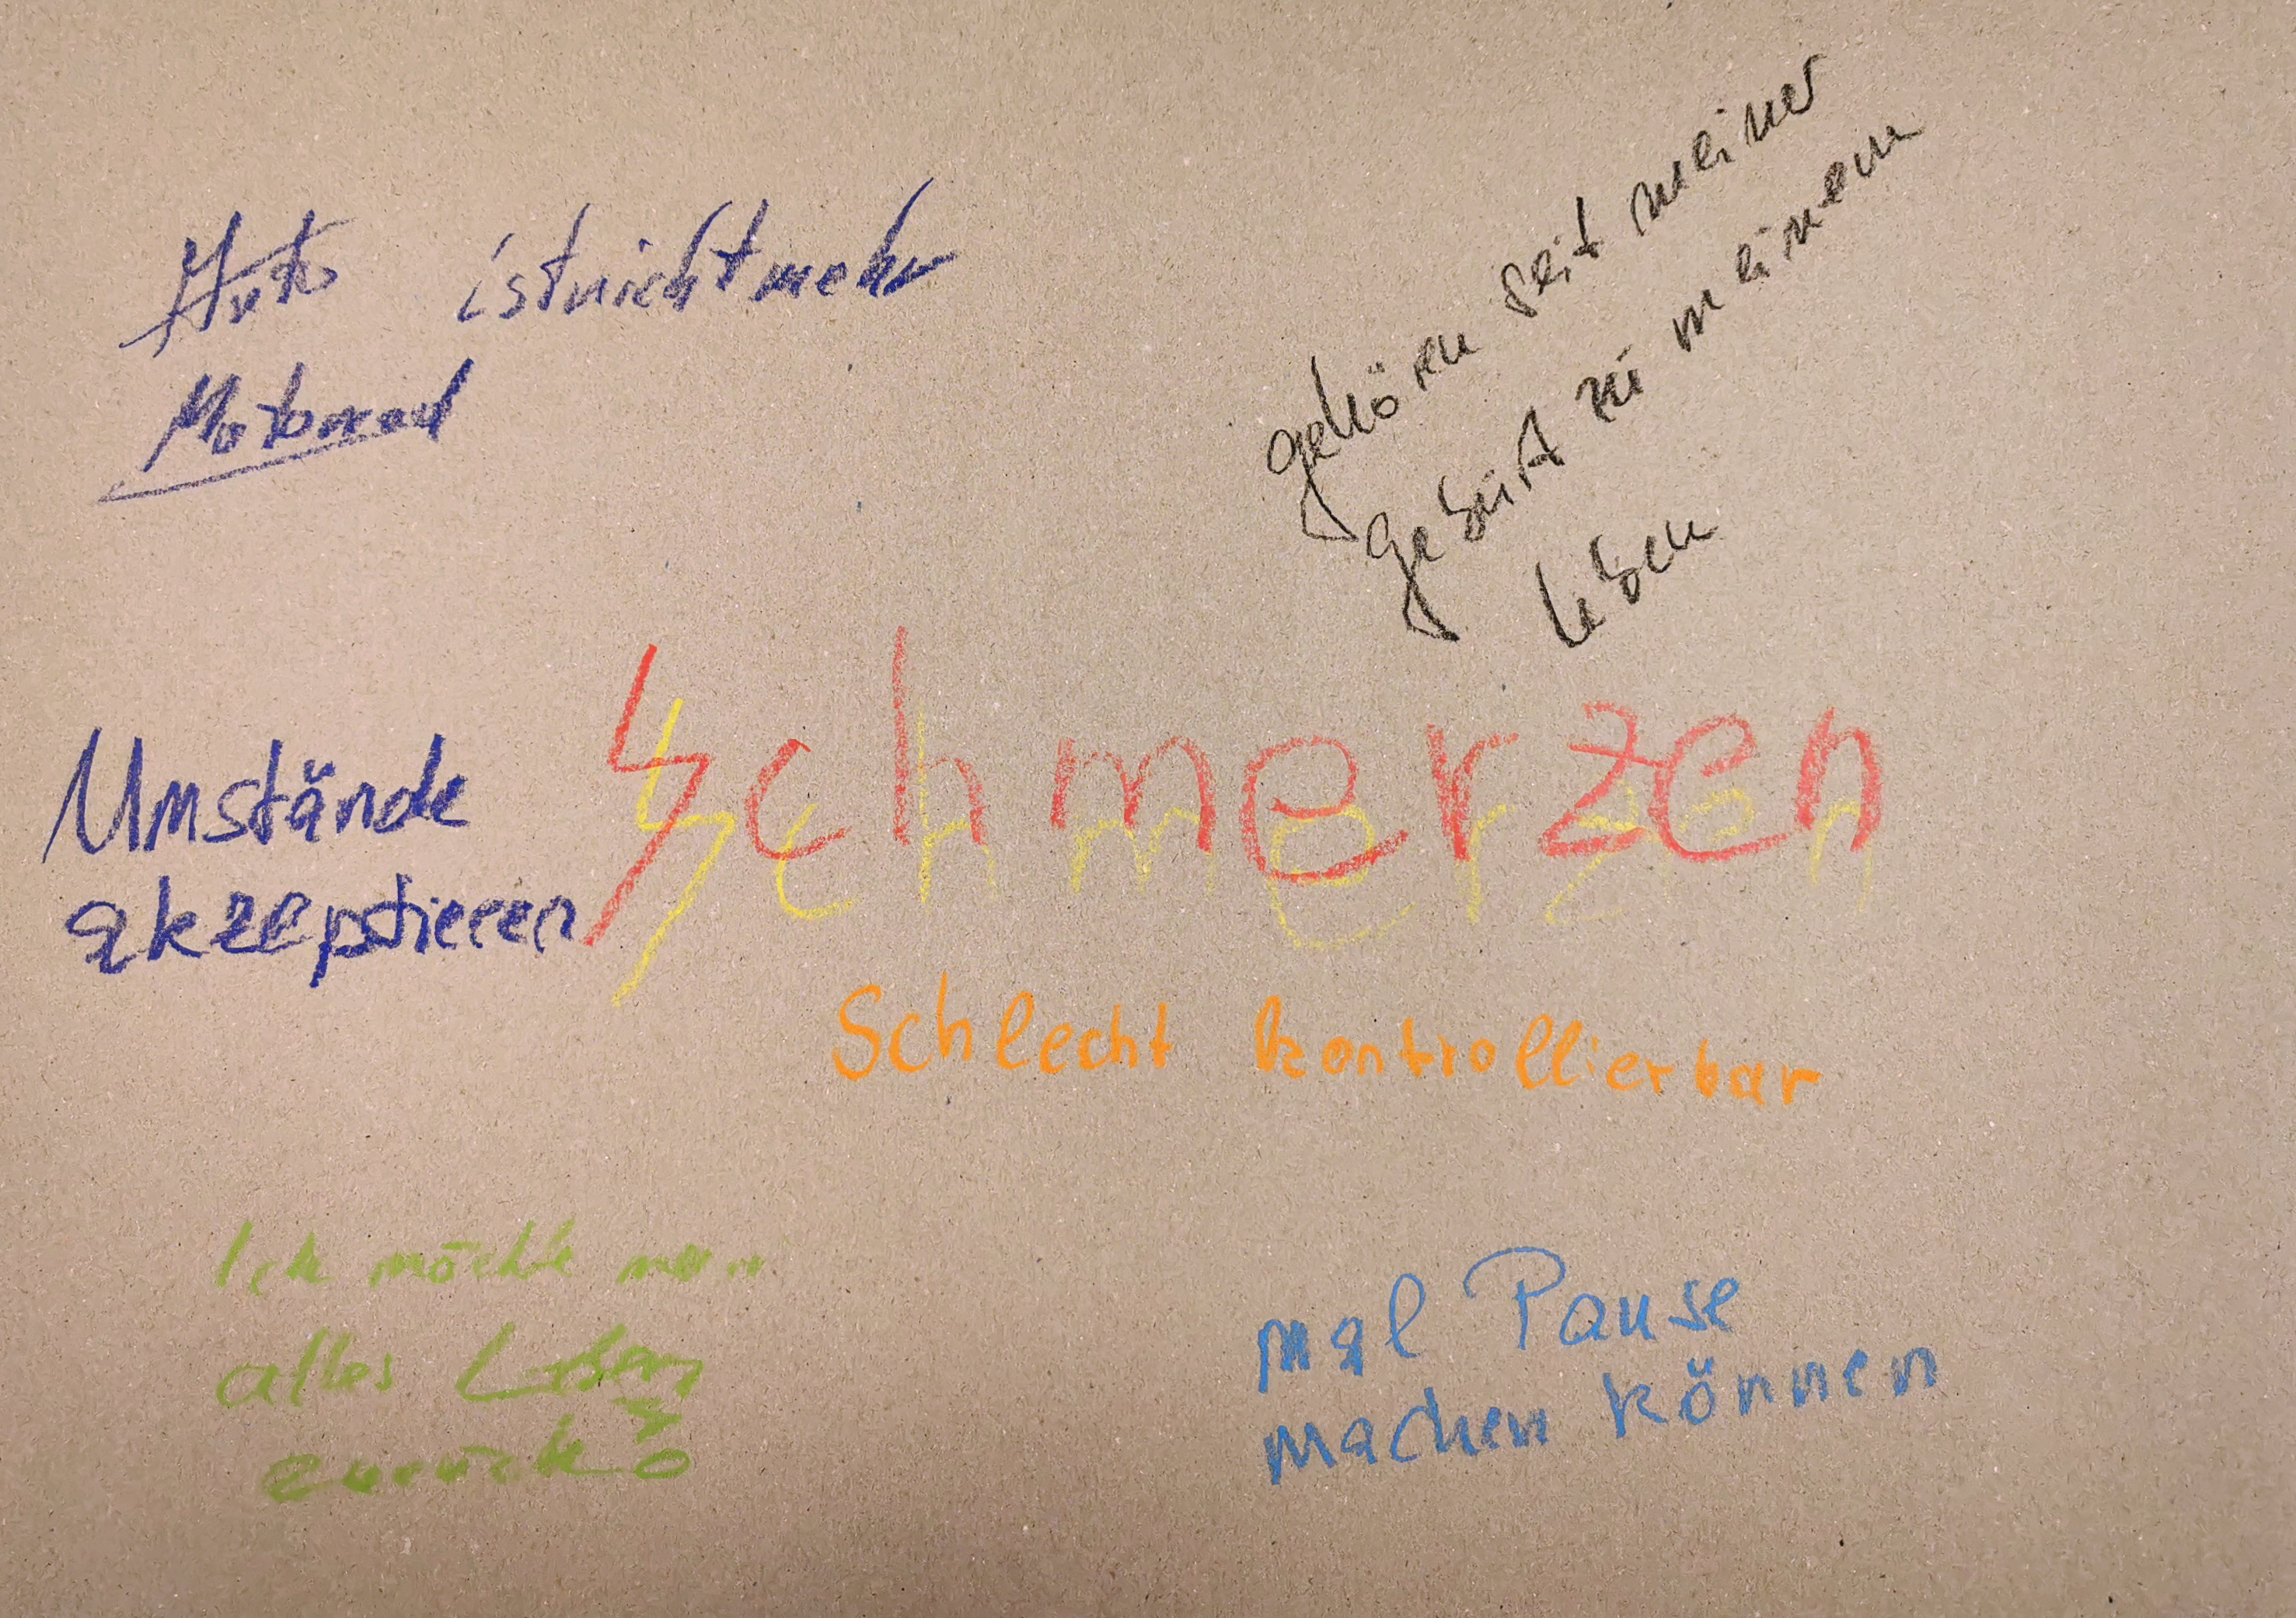 Auto ist nicht mehr
Motorrad
gehören seit meiner
Geburt zu meinem
Leben
Umstände
akzeptieren
Schmerzen
Schlecht kontrollierbar
Ich möchte mein
altes Leben
zurück
mal Pause
machen können